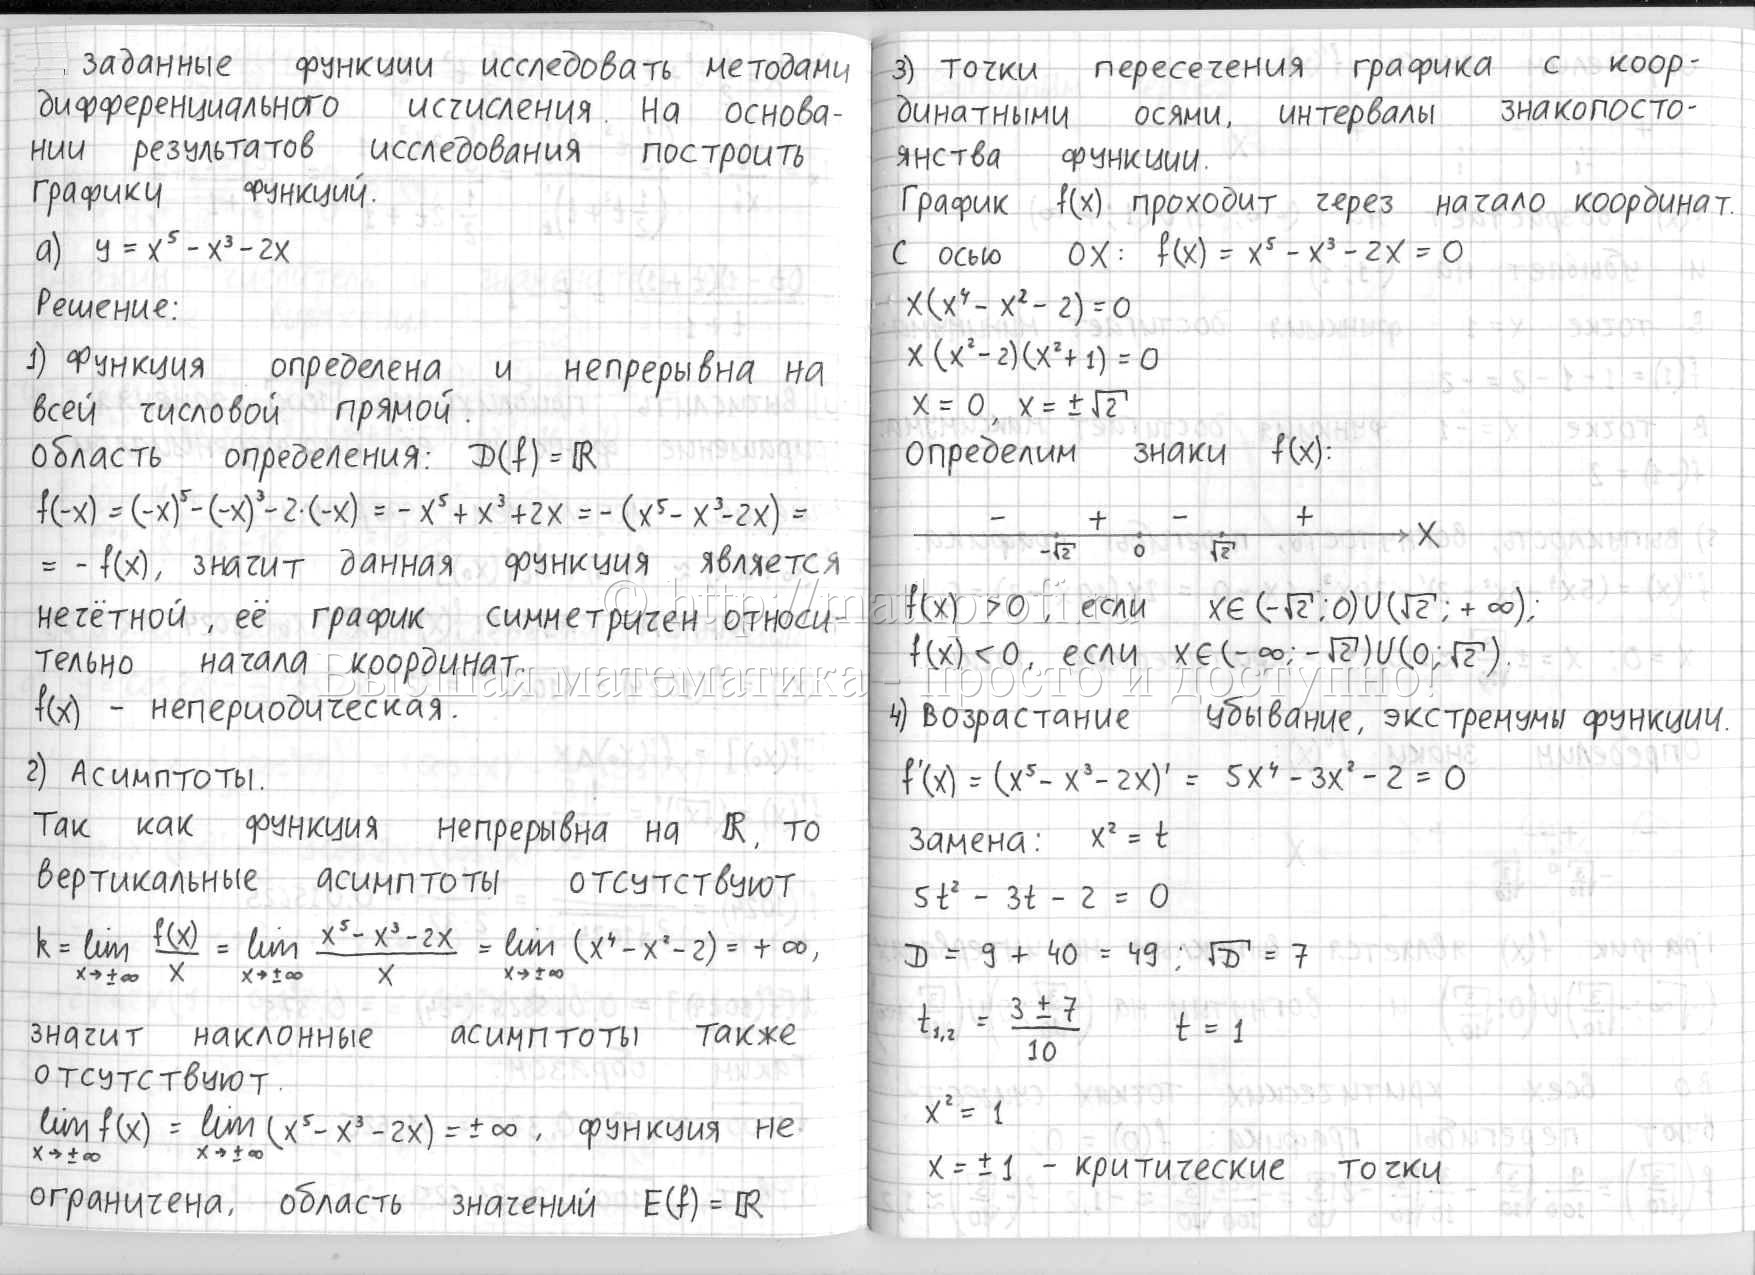 Заданные функции исследовать методами
дифференциального исчисления. На основа-
нии результатов исследования построить
графики функций.
а) y = x⁵ - x³ - 2x
Решение:
1) Функция определена и непрерывна на
всей числовой прямой.
Область определения: D(f) = ℝ
f(-x) = (-x)⁵ - (-x)³ - 2·(-x) = - x⁵ + x³ + 2x = - (x⁵ - x³ - 2x) =
= - f(x), значит данная функция является
нечётной, её график симметричен относи-
тельно начала координат.
f(x) - непериодическая.
2) Асимптоты.
Так как функция непрерывна на ℝ, то
вертикальные асимптоты отсутствуют
k = lim_{x→±∞} f(x)/x = lim_{x→±∞} (x⁵ - x³ - 2x)/x = lim_{x→±∞} (x⁴ - x² - 2) = + ∞,
значит наклонные асимптоты также
отсутствуют.
lim_{x→±∞} f(x) = lim_{x→±∞} (x⁵ - x³ - 2x) = ± ∞, функция не
ограничена, область значений E(f) = ℝ
3) Точки пересечения графика с коор-
динатными осями, интервалы знакопосто-
янства функции.
График f(x) проходит через начало координат.
С осью OX: f(x) = x⁵ - x³ - 2x = 0
x(x⁴ - x² - 2) = 0
x(x² - 2)(x² + 1) = 0
x = 0, x = ±√2
Определим знаки f(x):
- + - +
-√2 0 √2 X
f(x) > 0, если x ∈ (-√2; 0) U (√2; + ∞);
f(x) < 0, если x ∈ (- ∞; -√2) U (0; √2).
4) Возрастание убывание, экстремумы функции.
f'(x) = (x⁵ - x³ - 2x)' = 5x⁴ - 3x² - 2 = 0
Замена: x² = t
5t² - 3t - 2 = 0
D = 9 + 40 = 49; √D = 7
t₁,₂ = (3 ± 7)/10 t = 1
x² = 1
x = ± 1 - критические точки
© http://mathprofi.ru
Высшая математика - просто и доступно!